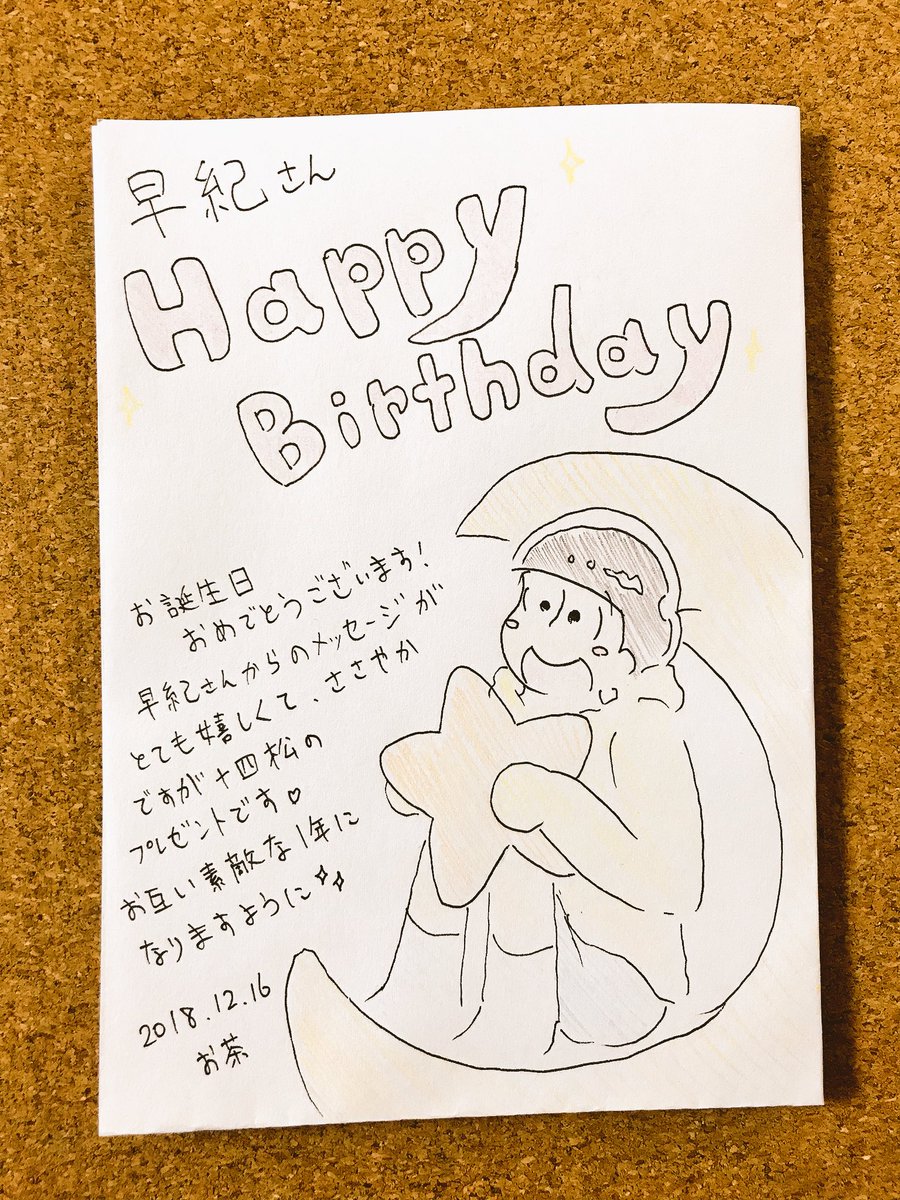 早紀さん
Happy
Birthday
お誕生日
おめでとうございます!
早紀さんからのメッセージが
とても嬉しくて、ささやか
ですが十四松の
プレゼントです♡
お互い素敵な1年に
なりますように✨
2018.12.16
お茶